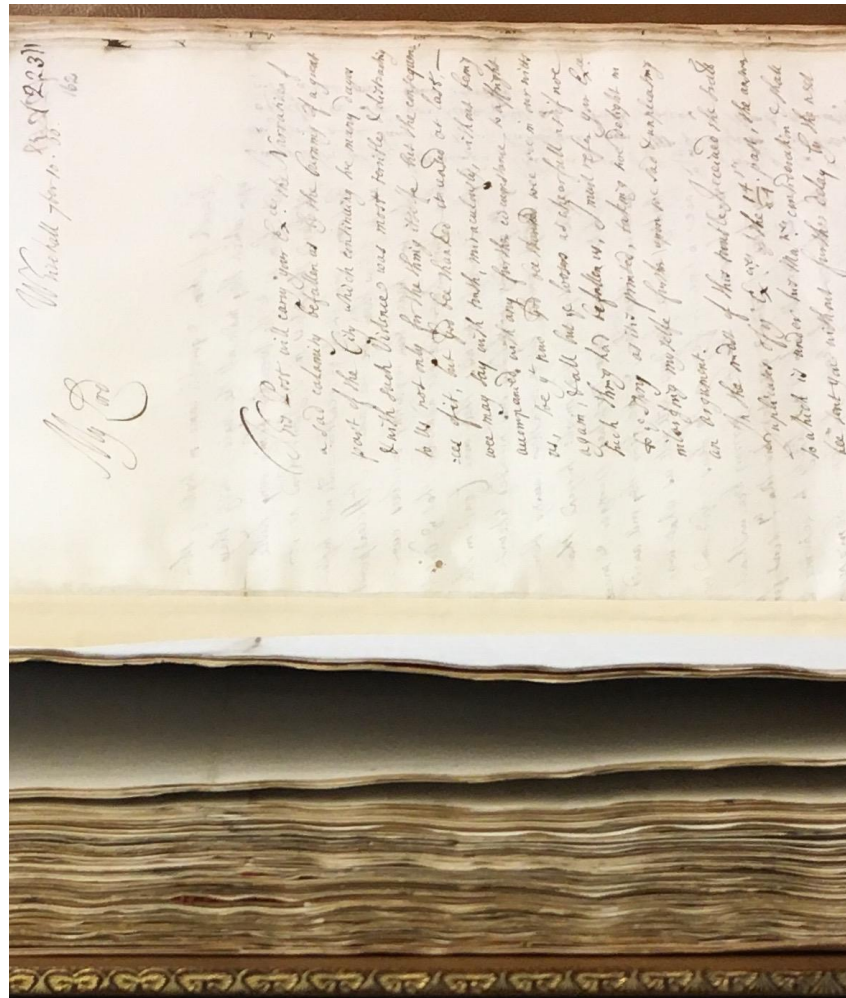 (223)
162
Whitehall 7br 15. 66
My Lord
This Post will carry your Exce: the Narrative of
a sad calamity befallen us by the burning of a great
part of the City which continuing so many dayes
& with such Violence was most terrible & distracting
to us not only for the thing it selfe but the consequen-
ces of it, but God be thanked it ended at last.—
wee may say with truth, miraculously, without being
accompanied with any further circumstance to affright
us, be yt now God be thanked wee are in our witts
again & all but ye losses as chearfull as if noe
such thing had befallen us, I must refer your Exce.
to ye thing as it is printed, taking noe delight in
inlarging my selfe further upon soe sad & unpleasing
an argument.
In the midst of this trouble I received the
duplicates of yor Exces of the past, the
which is under his Maties consideration & shall
bee sent you without further delay by the next